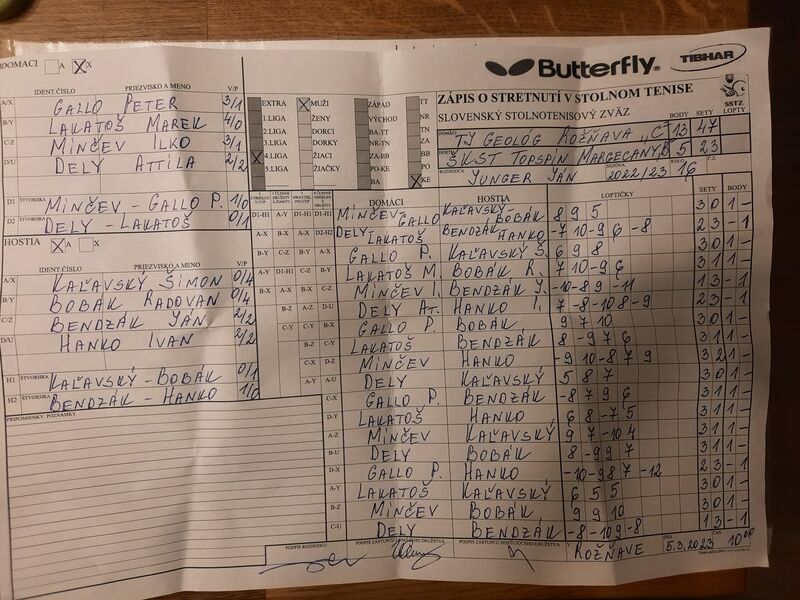 DOMACI A X
Butterfly® TIBHAR
IDENT.ČÍSLO PRIEZVISKO A MENO V/P
ZÁPIS O STRETNUTÍ V STOLNOM TENISE
SLOVENSKÝ STOLNOTENISOVÝ ZVÄZ
SSTZ
BODY SETY LOPTY
A/X GALLO PETER 3/1
B/Y LAKATOŠ MAREK 4/0
C/Z MINČEV ILKO 3/1
D/U DELY ATTILA 2/2
EXTRA X MUŽI ZÁPAD TT
1.LIGA ŽENY VÝCHOD NR
2.LIGA DORCI BA-TT TN
3.LIGA DORKY NR-TN ZA
X 4.LIGA ŽIACI ZA-BB BB
5.LIGA ŽIAČKY PO-KE PO
BA X KE
DOMÁCI TJ GEOLÓG ROŽŇAVA "C" 13 47
HOSTIA ŠKST TOPSPIN MARGECANY B 5 23
ROZHODCA JUNGER JÁN SEZÓNA 2022/23 KOLO 16 Č.Z.
D1 ŠTVORHRA MINČEV - GALLO P. 1/0
D2 DELY - LAKATOŠ 0/1
HOSTIA X A X
IDENT.ČÍSLO PRIEZVISKO A MENO V/P
A/X KAĽAVSKÝ ŠIMON 0/4
B/Y BOBÁK RADOVAN 0/4
C/Z BENDZÁK JÁN 2/2
D/U HANKO IVAN 2/2
H1 ŠTVORHRA KAĽAVSKÝ - BOBÁK 0/1
H2 BENDZÁK - HANKO 1/0
PRIPOMIENKY, POZNÁMKY
DOMÁCI HOSTIA LOPTIČKY SETY BODY
MINČEV GALLO KAĽAVSKÝ BOBÁK 8 9 5 3 0 1 -
DELY LAKATOŠ BENDZÁK HANKO -7 10 -9 6 -8 2 3 - 1
GALLO P. KAĽAVSKÝ Š. 6 9 8 3 0 1 -
LAKATOŠ M. BOBÁK R. 7 10 -9 6 3 1 1 -
MINČEV I. BENDZÁK J. -10 -8 9 -11 1 3 - 1
DELY AT. HANKO I. 7 -8 -10 8 -9 2 3 - 1
GALLO P. BOBÁK 9 7 10 3 0 1 -
LAKATOŠ BENDZÁK 8 -9 7 6 3 1 1 -
MINČEV HANKO -9 10 -8 7 9 3 2 1 -
DELY KAĽAVSKÝ 5 8 7 3 0 1 -
C-X GALLO P. BENDZÁK -8 7 9 6 3 1 1 -
D-Y LAKATOŠ HANKO 6 8 -7 5 3 1 1 -
A-Z MINČEV KAĽAVSKÝ 9 7 -10 4 3 1 1 -
B-U DELY BOBÁK 8 -9 9 7 3 1 1 -
D-X GALLO P. HANKO -10 -9 8 7 -12 2 3 - 1
A-Y LAKATOŠ KAĽAVSKÝ 6 5 5 3 0 1 -
B-Z MINČEV BOBÁK 9 9 10 3 0 1 -
C-U DELY BENDZÁK -8 -10 9 -8 1 3 - 1
PODPIS ROZHODCU PODPIS ZÁSTUPCU DOMÁCEHO DRUŽSTVA PODPIS ZÁSTUPCU HOSŤUJÚCEHO DRUŽSTVA V ROŽŇAVE DŇA 5.3.2023 ČAS 10 00